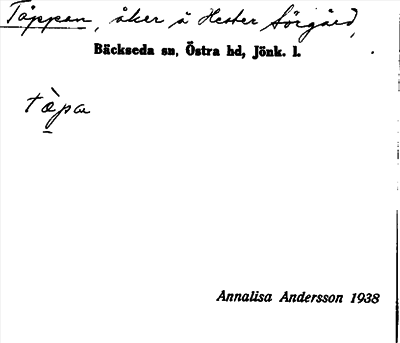 Täppan, åker å Hester Sörgård,
Bäckseda sn, Östra hd, Jönk. l.
tæ̀pa
Annalisa Andersson 1938